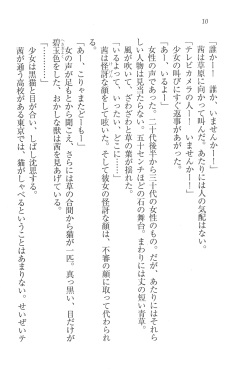 10
「誰かー！　誰か、いませんかー！」
茜は草原に向かって叫んだ。あたりには人の気配はない。
「テレビカメラの人ー！　いませんかー！」
少女の叫びにすぐ返事があがった。
「あー、いるよー」
女性の声であった。二十代後半から三十代の女性のもの。だが、あたりにはそれら
しい人物は見当たらない。五十センチほどの石の舞台。まわりには丈の短い青草。
風が吹いて、ざわざわと草の葉が揺れた。
「いるよって、いったい、どこに……」
茜は怪訝な顔をした。そして彼女の怪訝な顔は、不審の顔に取って代わられた。
「あー。こりゃまたどーも」
女の声がどもった。さらには草の合間から猫が一匹。真っ黒い、目だけが
碧玉色をしたおかしな獣は茜を見あげている。
「…………」
少女は黒猫と目が合い、しばし沈思する。
茜が通う高校がある東京では、猫がしゃべるということはあまりない。せいぜいテ